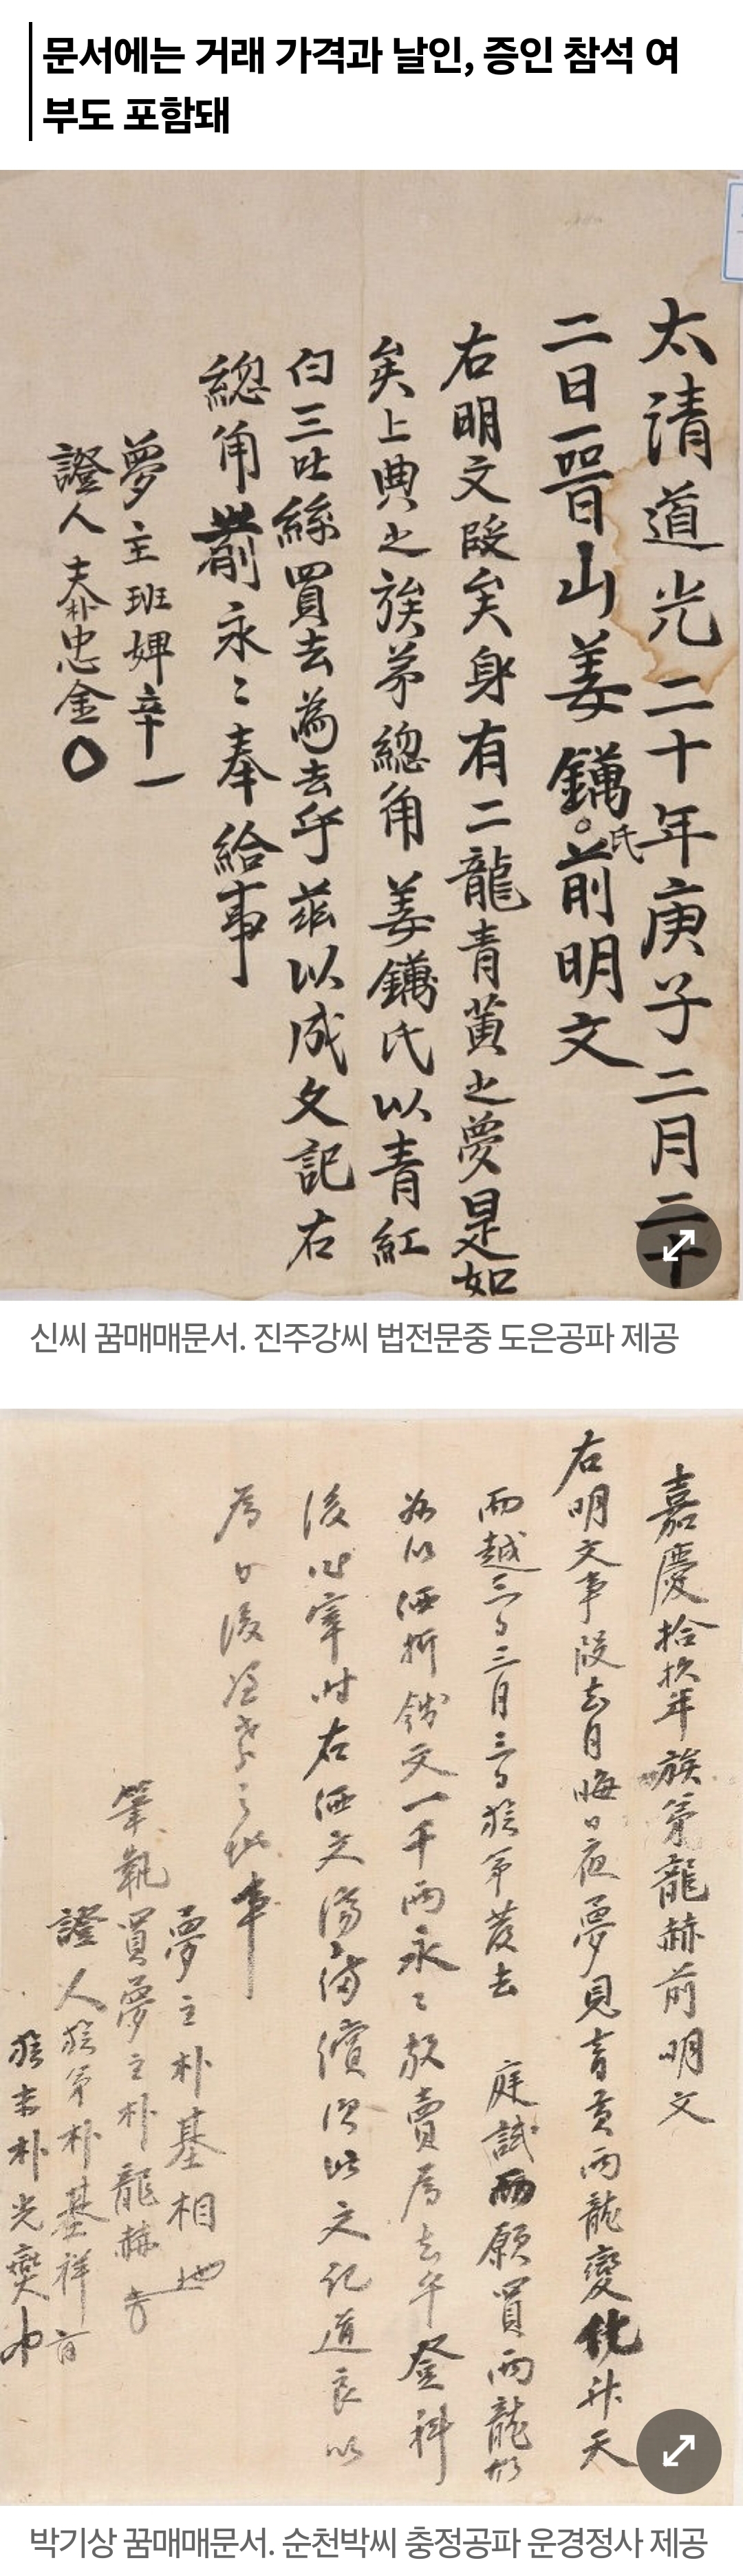 문서에는 거래 가격과 날인, 증인 참석 여
부도 포함돼
太清道光二十年庚子二月二十
二日晋山姜鏋氏前明文
右明文段矣身有二龍青黃之夢是如
矣上典之族弟總角姜鏋氏以青紅
白三吐絲買去為去乎茲以成文記右
總角前永〻奉給事
夢主班婢辛一
證人 忠金
신씨 꿈매매문서. 진주강씨 법전문중 도은공파 제공
嘉慶拾玖年 族弟龍赫前明文
右明文事段去月晦日夜夢見青黃兩龍變化升天
而越三日三月三日族弟發去 庭試而願買兩龍
以酒折錢文一千兩永〻放賣為去乎登科
後 宰時右酒文 備償次此文記道良以
日後 此事
夢主朴基相
筆執買夢主朴龍赫
證人族弟朴基祥
族末朴光
박기상 꿈매매문서. 순천박씨 충정공파 운경정사 제공